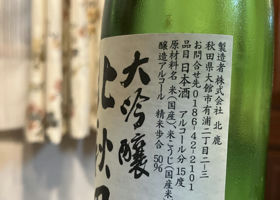 製造者 株式会社 北鹿
秋田県大館市有浦二丁目二ー三
お問合せ先 0186-42-2101
品目 日本酒 アルコール分 15度
原材料名 米(国産)、米こうじ(国産米)
醸造アルコール 精米歩合 50%
大吟醸
北秋田